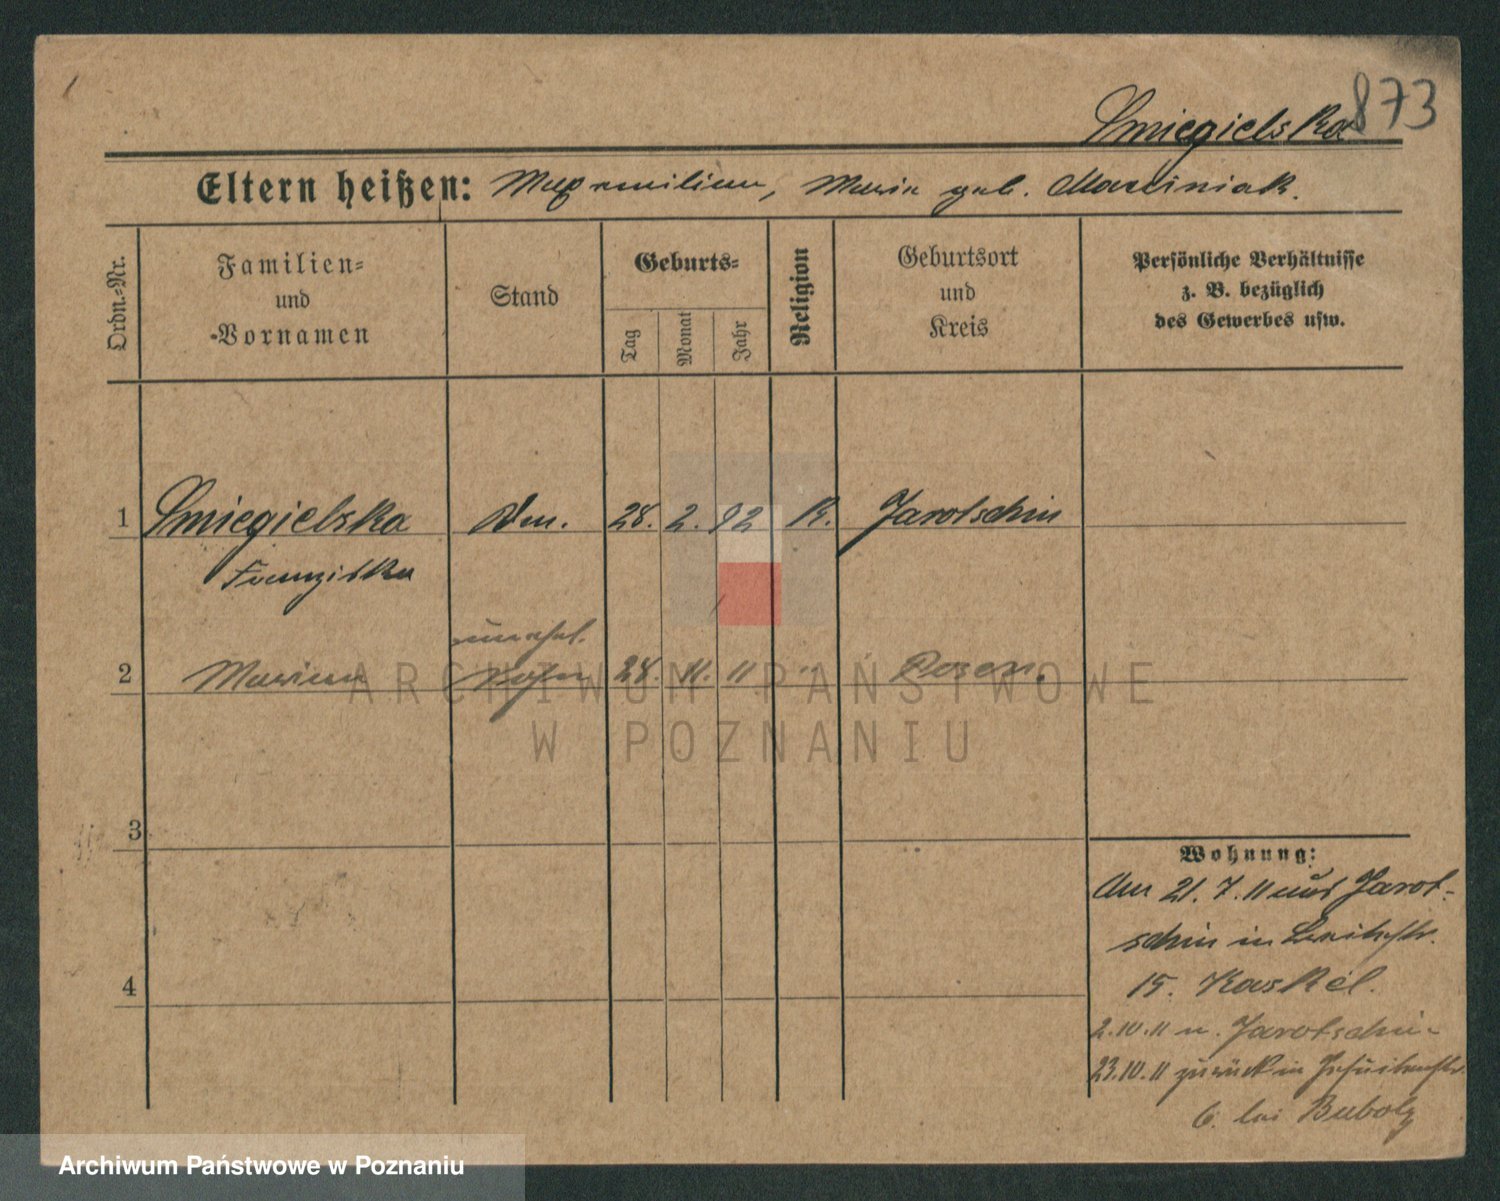 873
Smiegielska
Eltern heißen: Maxemilian, Maria geb. Marciniak.
Ordn.-Nr.
Familien-
und
-Vornamen
Stand
Geburts-
Tag
Monat
Jahr
Religion
Geburtsort
und
Kreis
Persönliche Verhältnisse
z. B. bezüglich
des Gewerbes usw.
1 Smiegielska 28. 2. 92 K. Jarotschin
Franziska
unehel.
2 28. 11. 11 " Posen.
3
4
Wohnung:
Am 21. 7. 11 aus Jarot-
schin in Breitestr.
15. Kaskel.
2.10.11 n. Jarotschin
23.10.11 zurück in Jesuitenstr.
6. bei Bubolz
ARCHIWUM PAŃSTWOWE
W POZNANIU
Archiwum Państwowe w Poznaniu